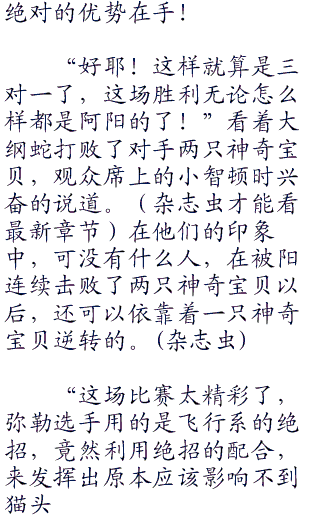 绝对的优势在手！
“好耶！这样就算是三
对一了，这场胜利无论怎么
样都是阿阳的了！”看着大
纲蛇打败了对手两只神奇宝
贝，观众席上的小智顿时兴
奋的说道。（杂志虫才能看
最新章节）在他们的印象
中，可没有什么人，在被阳
连续击败了两只神奇宝贝以
后，还可以依靠着一只神奇
宝贝逆转的。(杂志虫)
“这场比赛太精彩了，
弥勒选手用的是飞行系的绝
招，竟然利用绝招的配合，
来发挥出原本应该影响不到
猫头